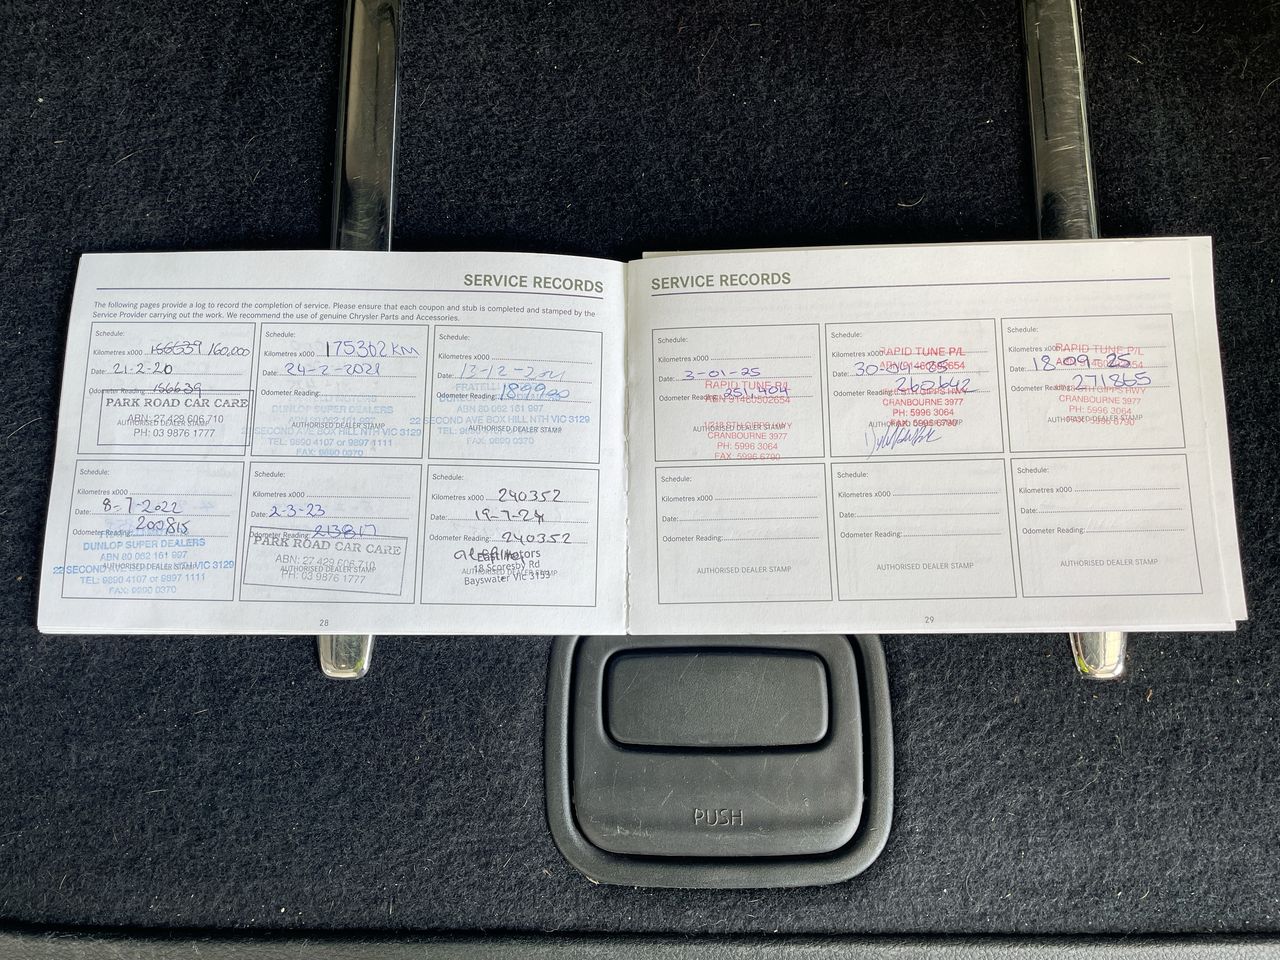 SERVICE RECORDS
The following pages provide a log to record the completion of service. Please ensure that each coupon and stub is completed and stamped by the
Service Provider carrying out the work. We recommend the use of genuine Chrysler Parts and Accessories.
Schedule:
Kilometres x000 166639 160,000
Date: 21-2-20
Odometer Reading: 166639
PARK ROAD CAR CARE
ABN: 27 429 606 710
AUTHORISED DEALER STAMP
PH: 03 9876 1777
Schedule:
Kilometres x000 175362 KM
Date: 24-2-2021
DUNLOP SUPER DEALERS
AUTHORISED DEALER STAMP
SECOND AVE BOX HILL NTH VIC 3129
TEL: 9890 4107 or 9897 1111
FAX: 9890 0370
Schedule:
Kilometres x000
Date: 13-12-2021
Odometer Reading:
ABN 80 062 161 997
22 SECOND AVE BOX HILL NTH VIC 3129
AUTHORISED DEALER STAMP
FAX: 9890 0370
Schedule:
Kilometres x000
Date: 8-7-2022
Odometer Reading: 200815
DUNLOP SUPER DEALERS
ABN 80 062 161 997
22 SECOND AVE VIC 3129
AUTHORISED DEALER STAMP
TEL: 9890 4107 or 9897 1111
FAX: 9890 0370
Schedule:
Kilometres x000
Date: 2-3-23
Odometer Reading: 213817
PARK ROAD CAR CARE
ABN: 27 429 606 710
AUTHORISED DEALER STAMP
PH: 03 9876 1777
Schedule:
Kilometres x000 240352
Date: 19-7-24
Odometer Reading: 240352
East Motors
18 Scoresby Rd
AUTHORISED DEALER STAMP
Bayswater Vic 3153
28
SERVICE RECORDS
Schedule:
Kilometres x000
Date: 3-01-25
RAPID TUNE P/L
Odometer Reading: 251404
ABN 91460502654
AUTHORISED DEALER STAMP
1/218 STH GIPPS HWY
CRANBOURNE 3977
PH: 5996 3064
FAX: 5996 6790
Schedule:
Kilometres x000
RAPID TUNE P/L
Date:
ABN 91460502654
Odometer Reading: 260642
STH GIPPS HWY
CRANBOURNE 3977
PH: 5996 3064
AUTHORISED DEALER STAMP
FAX: 5996 6790
Schedule:
Kilometres x000
RAPID TUNE P/L
Date: 18-09-25
Odometer Reading: 271865
STH GIPPS HWY
CRANBOURNE 3977
PH: 5996 3064
AUTHORISED DEALER STAMP
FAX: 5996 6790
Schedule:
Kilometres x000
Date:
Odometer Reading:
AUTHORISED DEALER STAMP
Schedule:
Kilometres x000
Date:
Odometer Reading:
AUTHORISED DEALER STAMP
Schedule:
Kilometres x000
Date:
Odometer Reading:
AUTHORISED DEALER STAMP
29
PUSH